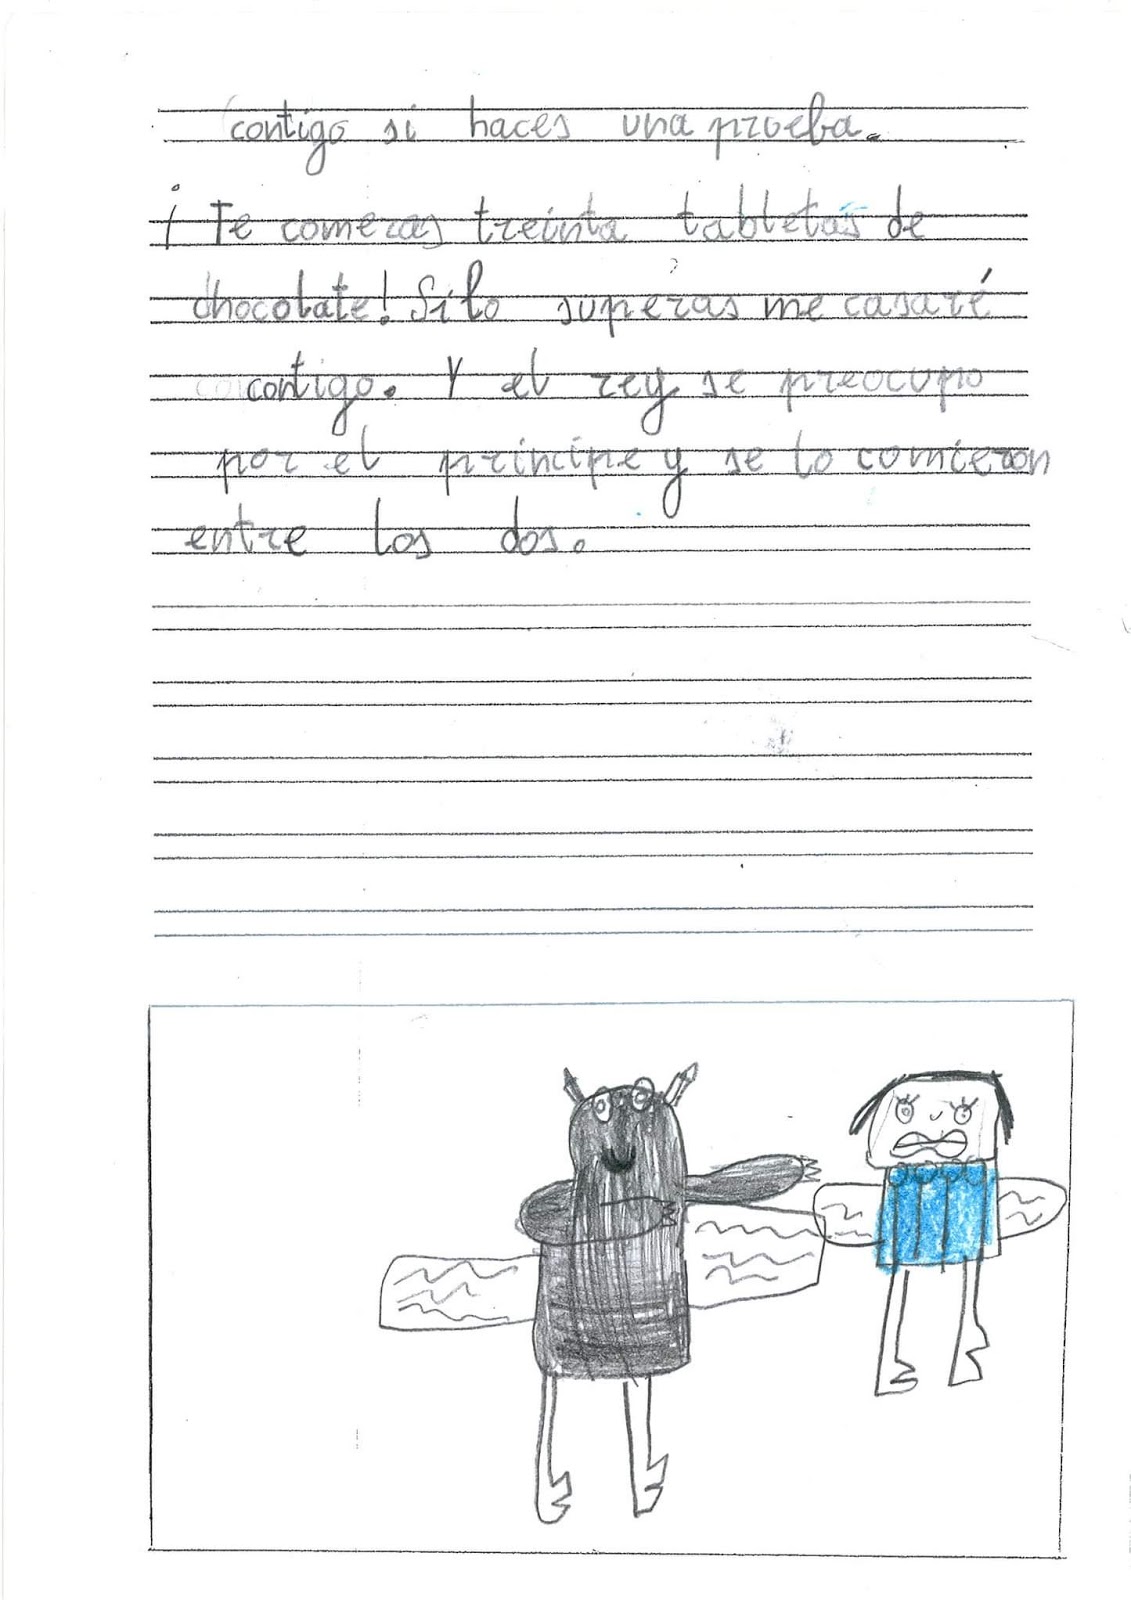 contigo si haces una proeba.
¡Te comeras treinta tabletas de
chocolate! Si lo superas me casaré
contigo. Y el rey se preocupo
por el principe y se lo comieron
entre los dos.